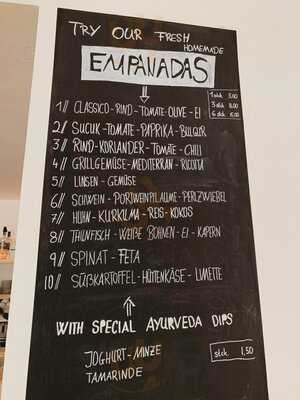 TRY OUR FRESH
HOMEMADE
EMPANADAS
1// CLASSICO - RIND - TOMATE - OLIVE - EI
2// SUCUK - TOMATE - PAPRIKA - BULGUR
3// RIND - KORIANDER - TOMATE - CHILI
4// GRILLGEMÜSE - MEDITERRAN - RICOTTA
5// LINSEN - GEMÜSE
6// SCHWEIN - PORTWEINPFLAUME - PERLZWIEBEL
7// HUHN - KURKUMA - REIS - KOKOS
8// THUNFISCH - WEIßE BOHNEN - EI - KAPERN
9// SPINAT - FETA
10// SÜßKARTOFFEL - HÜTTENKÄSE - LIMETTE
WITH SPECIAL AYURVEDA DIPS
JOGHURT - MINZE
TAMARINDE
stck. 1,50